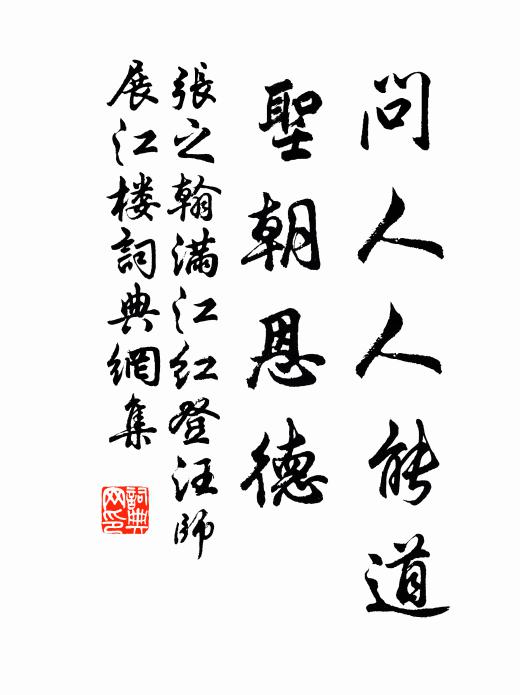 問人人能道
聖朝恩德
張之翰滿江红登汪師
展江楼詞典網集
詞典
网印